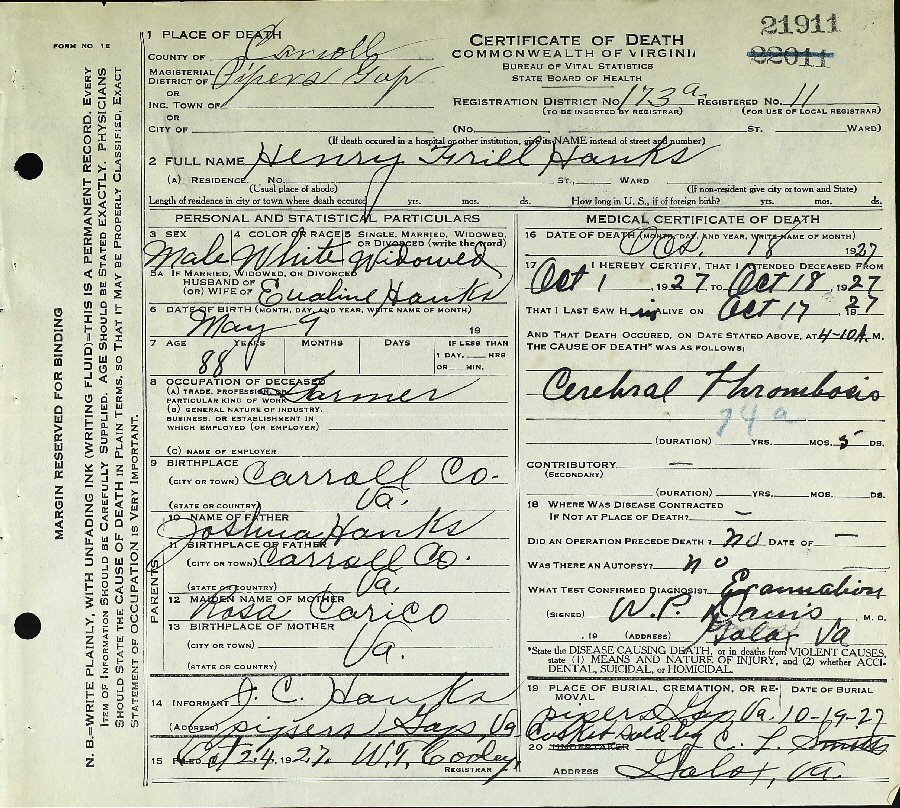 21911
22011
FORM NO. 12
MARGIN RESERVED FOR BINDING
N. B.—WRITE PLAINLY, WITH UNFADING INK (WRITING FLUID)—THIS IS A PERMANENT RECORD. EVERY
ITEM OF INFORMATION SHOULD BE CAREFULLY SUPPLIED. AGE SHOULD BE STATED EXACTLY. PHYSICIANS
SHOULD STATE THE CAUSE OF DEATH IN PLAIN TERMS, SO THAT IT MAY BE PROPERLY CLASSIFIED. EXACT
STATEMENT OF OCCUPATION IS VERY IMPORTANT.
1 PLACE OF DEATH
COUNTY OF Carroll
MAGISTERIAL
DISTRICT OF Pipers Gap
OR
INC. TOWN OF
OR
CITY OF
CERTIFICATE OF DEATH
COMMONWEALTH OF VIRGINIA
BUREAU OF VITAL STATISTICS
STATE BOARD OF HEALTH
REGISTRATION DISTRICT NO. 173a REGISTERED NO. 11
(TO BE INSERTED BY REGISTRAR) (FOR USE OF LOCAL REGISTRAR)
(NO. ST. WARD)
(If death occured in a hospital or other institution, give its NAME instead of street and number)
2 FULL NAME Henry Hanks
(A) RESIDENCE. NO. ST., WARD
(Usual place of abode) (If non-resident give city or town and State)
Length of residence in city or town where death occured yrs. mos. ds. How long in U. S., if of foreign birth? yrs. mos. ds.
PERSONAL AND STATISTICAL PARTICULARS
3 SEX 4 COLOR OR RACE 5 SINGLE, MARRIED, WIDOWED,
OR DIVORCED (write the word)
Male White Widowed
5A IF MARRIED, WIDOWED, OR DIVORCED
HUSBAND OF
(OR) WIFE OF Hanks
6 DATE OF BIRTH (MONTH, DAY, AND YEAR, WRITE NAME OF MONTH)
May 9 19
7 AGE YEARS MONTHS DAYS IF LESS THAN
1 DAY, HRS
OR MIN.
88
8 OCCUPATION OF DECEASED
(A) TRADE, PROFESSION, OR
PARTICULAR KIND OF WORK Farmer
(B) GENERAL NATURE OF INDUSTRY,
BUSINESS, OR ESTABLISHMENT IN
WHICH EMPLOYED (OR EMPLOYER)
(C) NAME OF EMPLOYER
9 BIRTHPLACE
(CITY OR TOWN) Carroll Co.
(STATE OR COUNTRY) Va.
PARENTS
10 NAME OF FATHER
Joshua Hanks
11 BIRTHPLACE OF FATHER
(CITY OR TOWN) Carroll Co.
(STATE OR COUNTRY) Va.
12 MAIDEN NAME OF MOTHER
Rosa Carico
13 BIRTHPLACE OF MOTHER
(CITY OR TOWN)
(STATE OR COUNTRY) Va.
14 INFORMANT J. C. Hanks
(ADDRESS) pipers Gap, Va
15 FILED Oct 24, 1927. W. T. Cooley
REGISTRAR
MEDICAL CERTIFICATE OF DEATH
16 DATE OF DEATH (MONTH, DAY, AND YEAR, WRITE NAME OF MONTH)
Oct. 18 1927
17 I HEREBY CERTIFY, THAT I ATTENDED DECEASED FROM
Oct 1 1927 TO Oct 18, 1927
THAT I LAST SAW H im ALIVE ON Oct 17 1927
AND THAT DEATH OCCURED, ON DATE STATED ABOVE, AT 4-10A M.
THE CAUSE OF DEATH* WAS AS FOLLOWS:
Cerebral Thrombosis
74a
(DURATION) YRS. MOS. 5 DS.
CONTRIBUTORY —
(SECONDARY)
(DURATION) YRS. MOS. DS.
18 WHERE WAS DISEASE CONTRACTED
IF NOT AT PLACE OF DEATH? —
DID AN OPERATION PRECEDE DEATH? no DATE OF —
WAS THERE AN AUTOPSY? no
WHAT TEST CONFIRMED DIAGNOSIS? Examnation
(SIGNED) W. P. Davis M. D.
, 19 (ADDRESS) Galax Va
*State the DISEASE CAUSING DEATH, or in deaths from VIOLENT CAUSES,
state (1) MEANS AND NATURE OF INJURY, and (2) whether ACCI-
DENTAL, SUICIDAL, or HOMICIDAL.
19 PLACE OF BURIAL, CREMATION, OR RE- DATE OF BURIAL
MOVAL
pipers Gap Va. 10-19-27
Casket Sold by C. L. Smith
20 UNDERTAKER
ADDRESS Galax, Va.